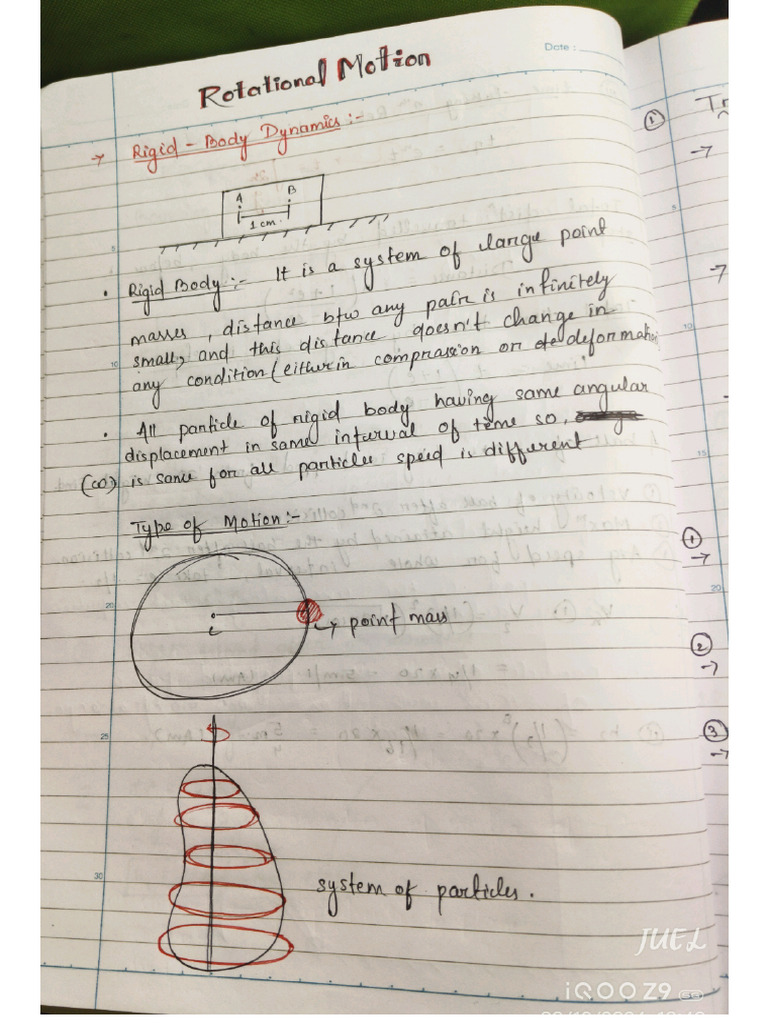 Date :
Rotational Motion
→ Rigid - Body Dynamics :-
A B
1 cm.
• Rigid Body :- It is a system of large point
masses, distance btw any pair is infinitely
small, and this distance doesn't change in
any condition (either in comprassion or de deformation
• All particle of rigid body having same angular
displacement in same interval of time so,
(ω) is same for all particles speed is different
Type of Motion :-
→ point mass
system of particles.
5
10
15
20
25
30
① Tr
→
→
① →
② →
③ →
JUEL
iQOO Z9 5G